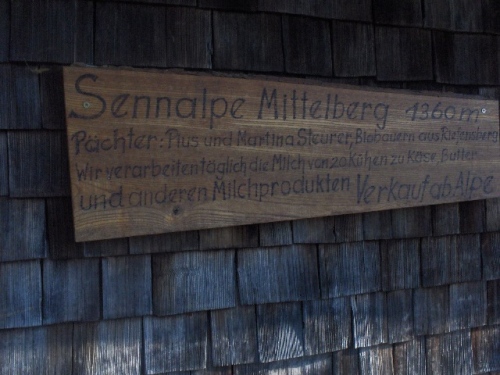 Sennalpe Mittelberg 1360 m
Pächter: Pius und Martina Steurer, Biobauern aus Riefensberg
Wir verarbeiten täglich die Milch von 20 Kühen zu Käse, Butter
und anderen Milchprodukten Verkauf ab Alpe